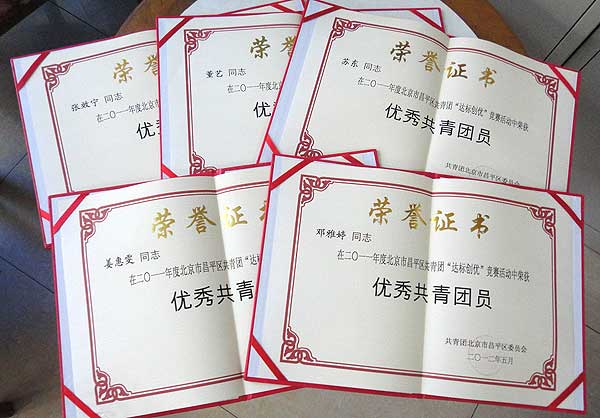 荣誉
张效宁 同志
在二〇一一年度北京市
优秀共
荣誉
董艺 同志
在二〇一一年度北京市昌
优秀共
荣誉证书
苏东 同志
在二〇一一年度北京市昌平区共青团“达标创优”竞赛活动中荣获
优秀共青团员
共青团北京市昌平区委员会
荣誉证
姜惠雯 同志
在二〇一一年度北京市昌平区共青团“达标
优秀共青团员
荣誉证书
邓雅婷 同志
在二〇一一年度北京市昌平区共青团“达标创优”竞赛活动中荣获
优秀共青团员
共青团北京市昌平区委员会
二〇一二年五月